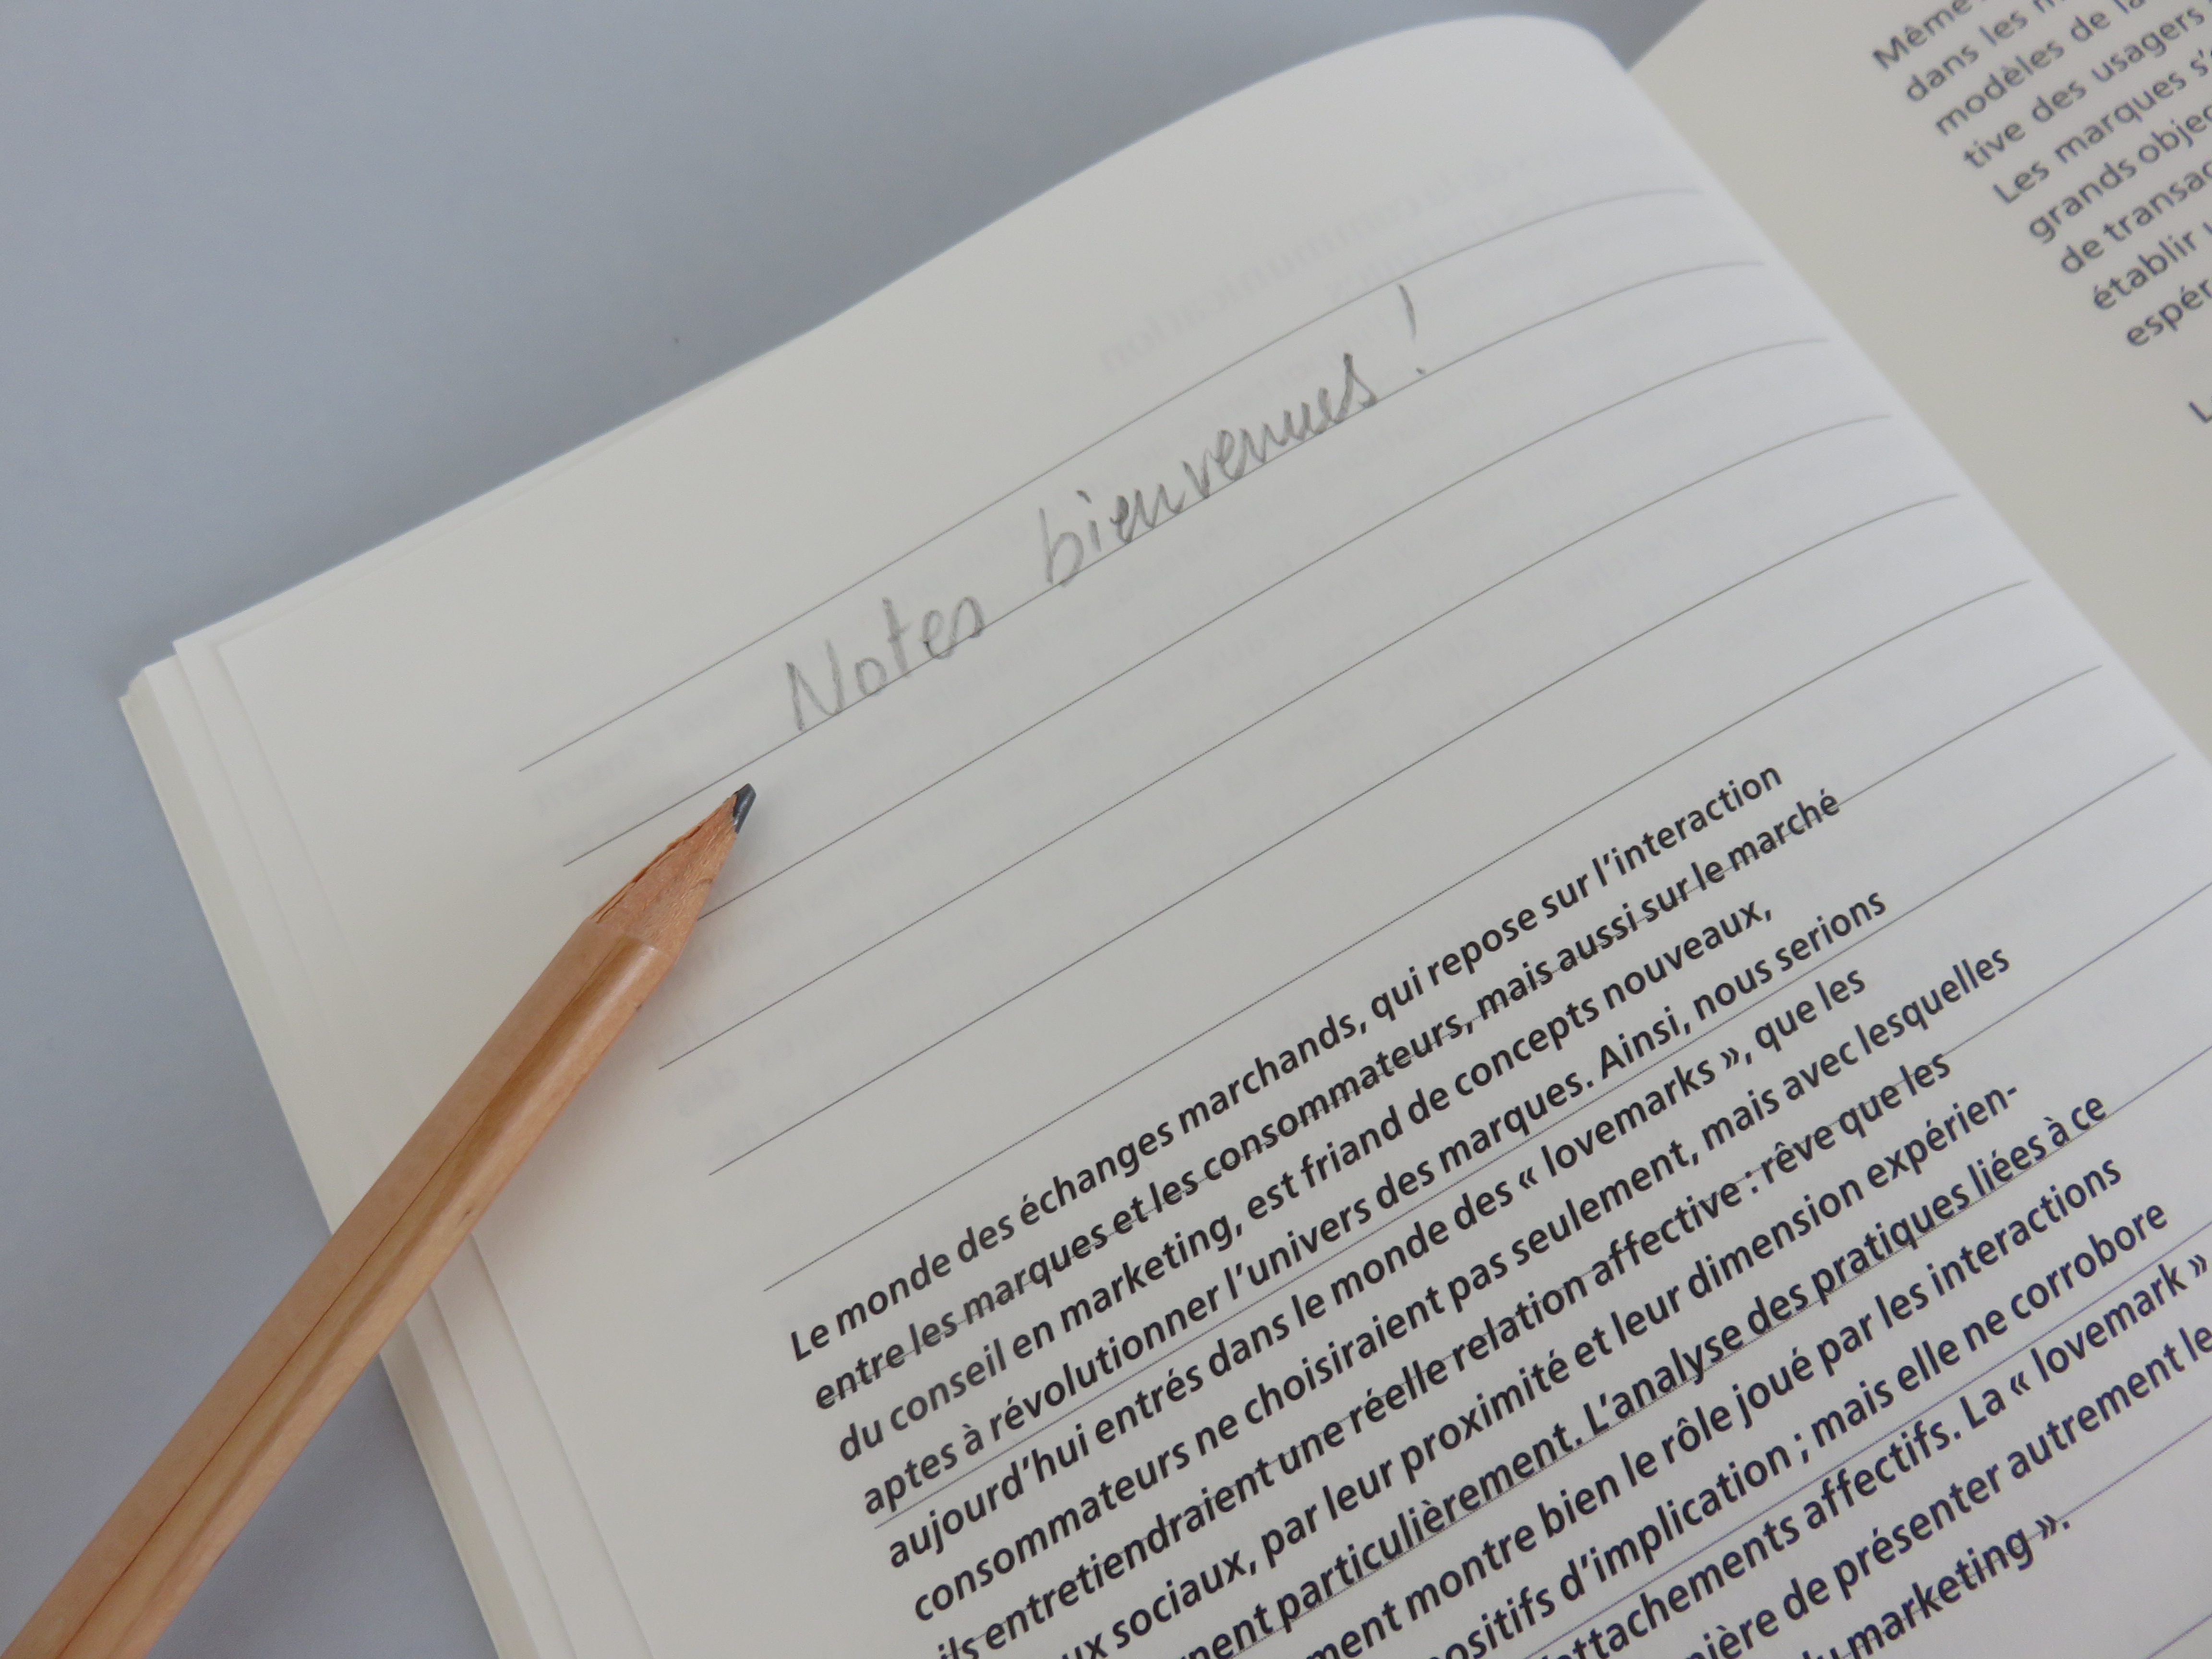 Notes bienvenues !
Le monde des échanges marchands, qui repose sur l'interaction
entre les marques et les consommateurs, mais aussi sur le marché
du conseil en marketing, est friand de concepts nouveaux,
aptes à révolutionner l'univers des marques. Ainsi, nous serions
aujourd'hui entrés dans le monde des « lovemarks », que les
consommateurs ne choisiraient pas seulement, mais avec lesquelles
ils entretiendraient une réelle relation affective : rêve que les
sociaux, par leur proximité et leur dimension expérien-
particulièrement. L'analyse des pratiques liées à ce
montre bien le rôle joué par les interactions
d'implication ; mais elle ne corrobore
attachements affectifs. La « lovemark »
de présenter autrement le
marketing ».
Même
dans les
modèles de la
tive des usagers
Les marques s'
grands
de
établir